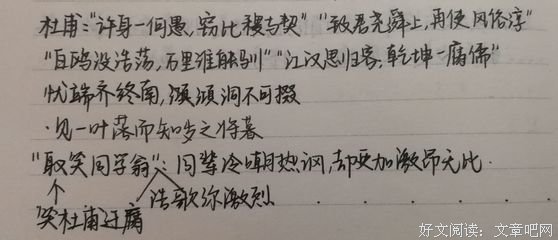 杜甫:"许身一何愚,窃比稷与契""致君尧舜上,再使风俗淳"
"白鸥没浩荡,万里谁能驯""江汉思归客,乾坤一腐儒"
忧端齐终南,澒洞不可掇
·见一叶落而知岁之将暮
"取笑同学翁":同辈冷嘲热讽,却更加激昂无比.
浩歌弥激烈
笑杜甫迂腐
好文阅读:文章吧网